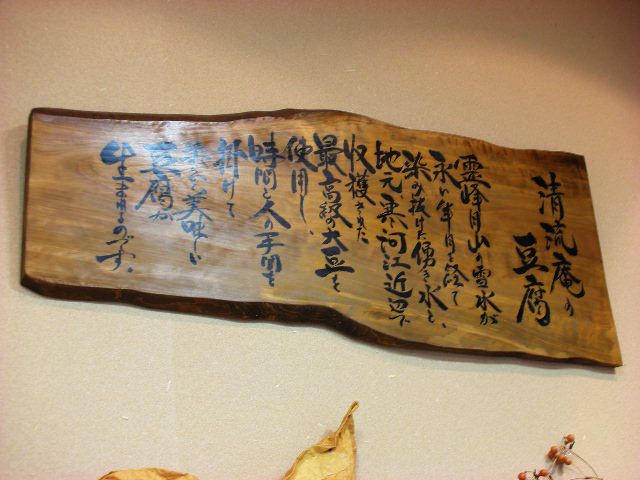 清流庵の
豆腐
霊峰月山の雪水が
永い年月を経て
染み抜けた湧き水と、
地元寒河江近辺で
収獲された
最高級の大豆を
使用し、
時間と人の手間を
掛けて
美味しい
豆腐が
生まれるのです。